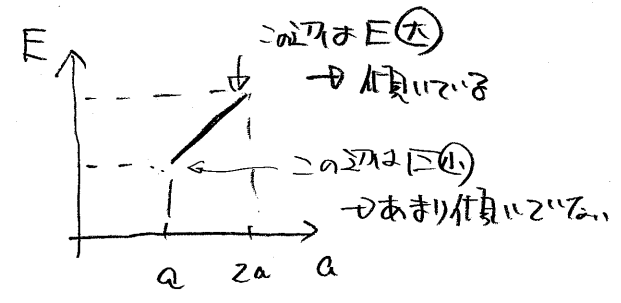 この辺は E 大
E
→ 傾いている
この辺は E 小
→ あまり傾いていない
a 2a a